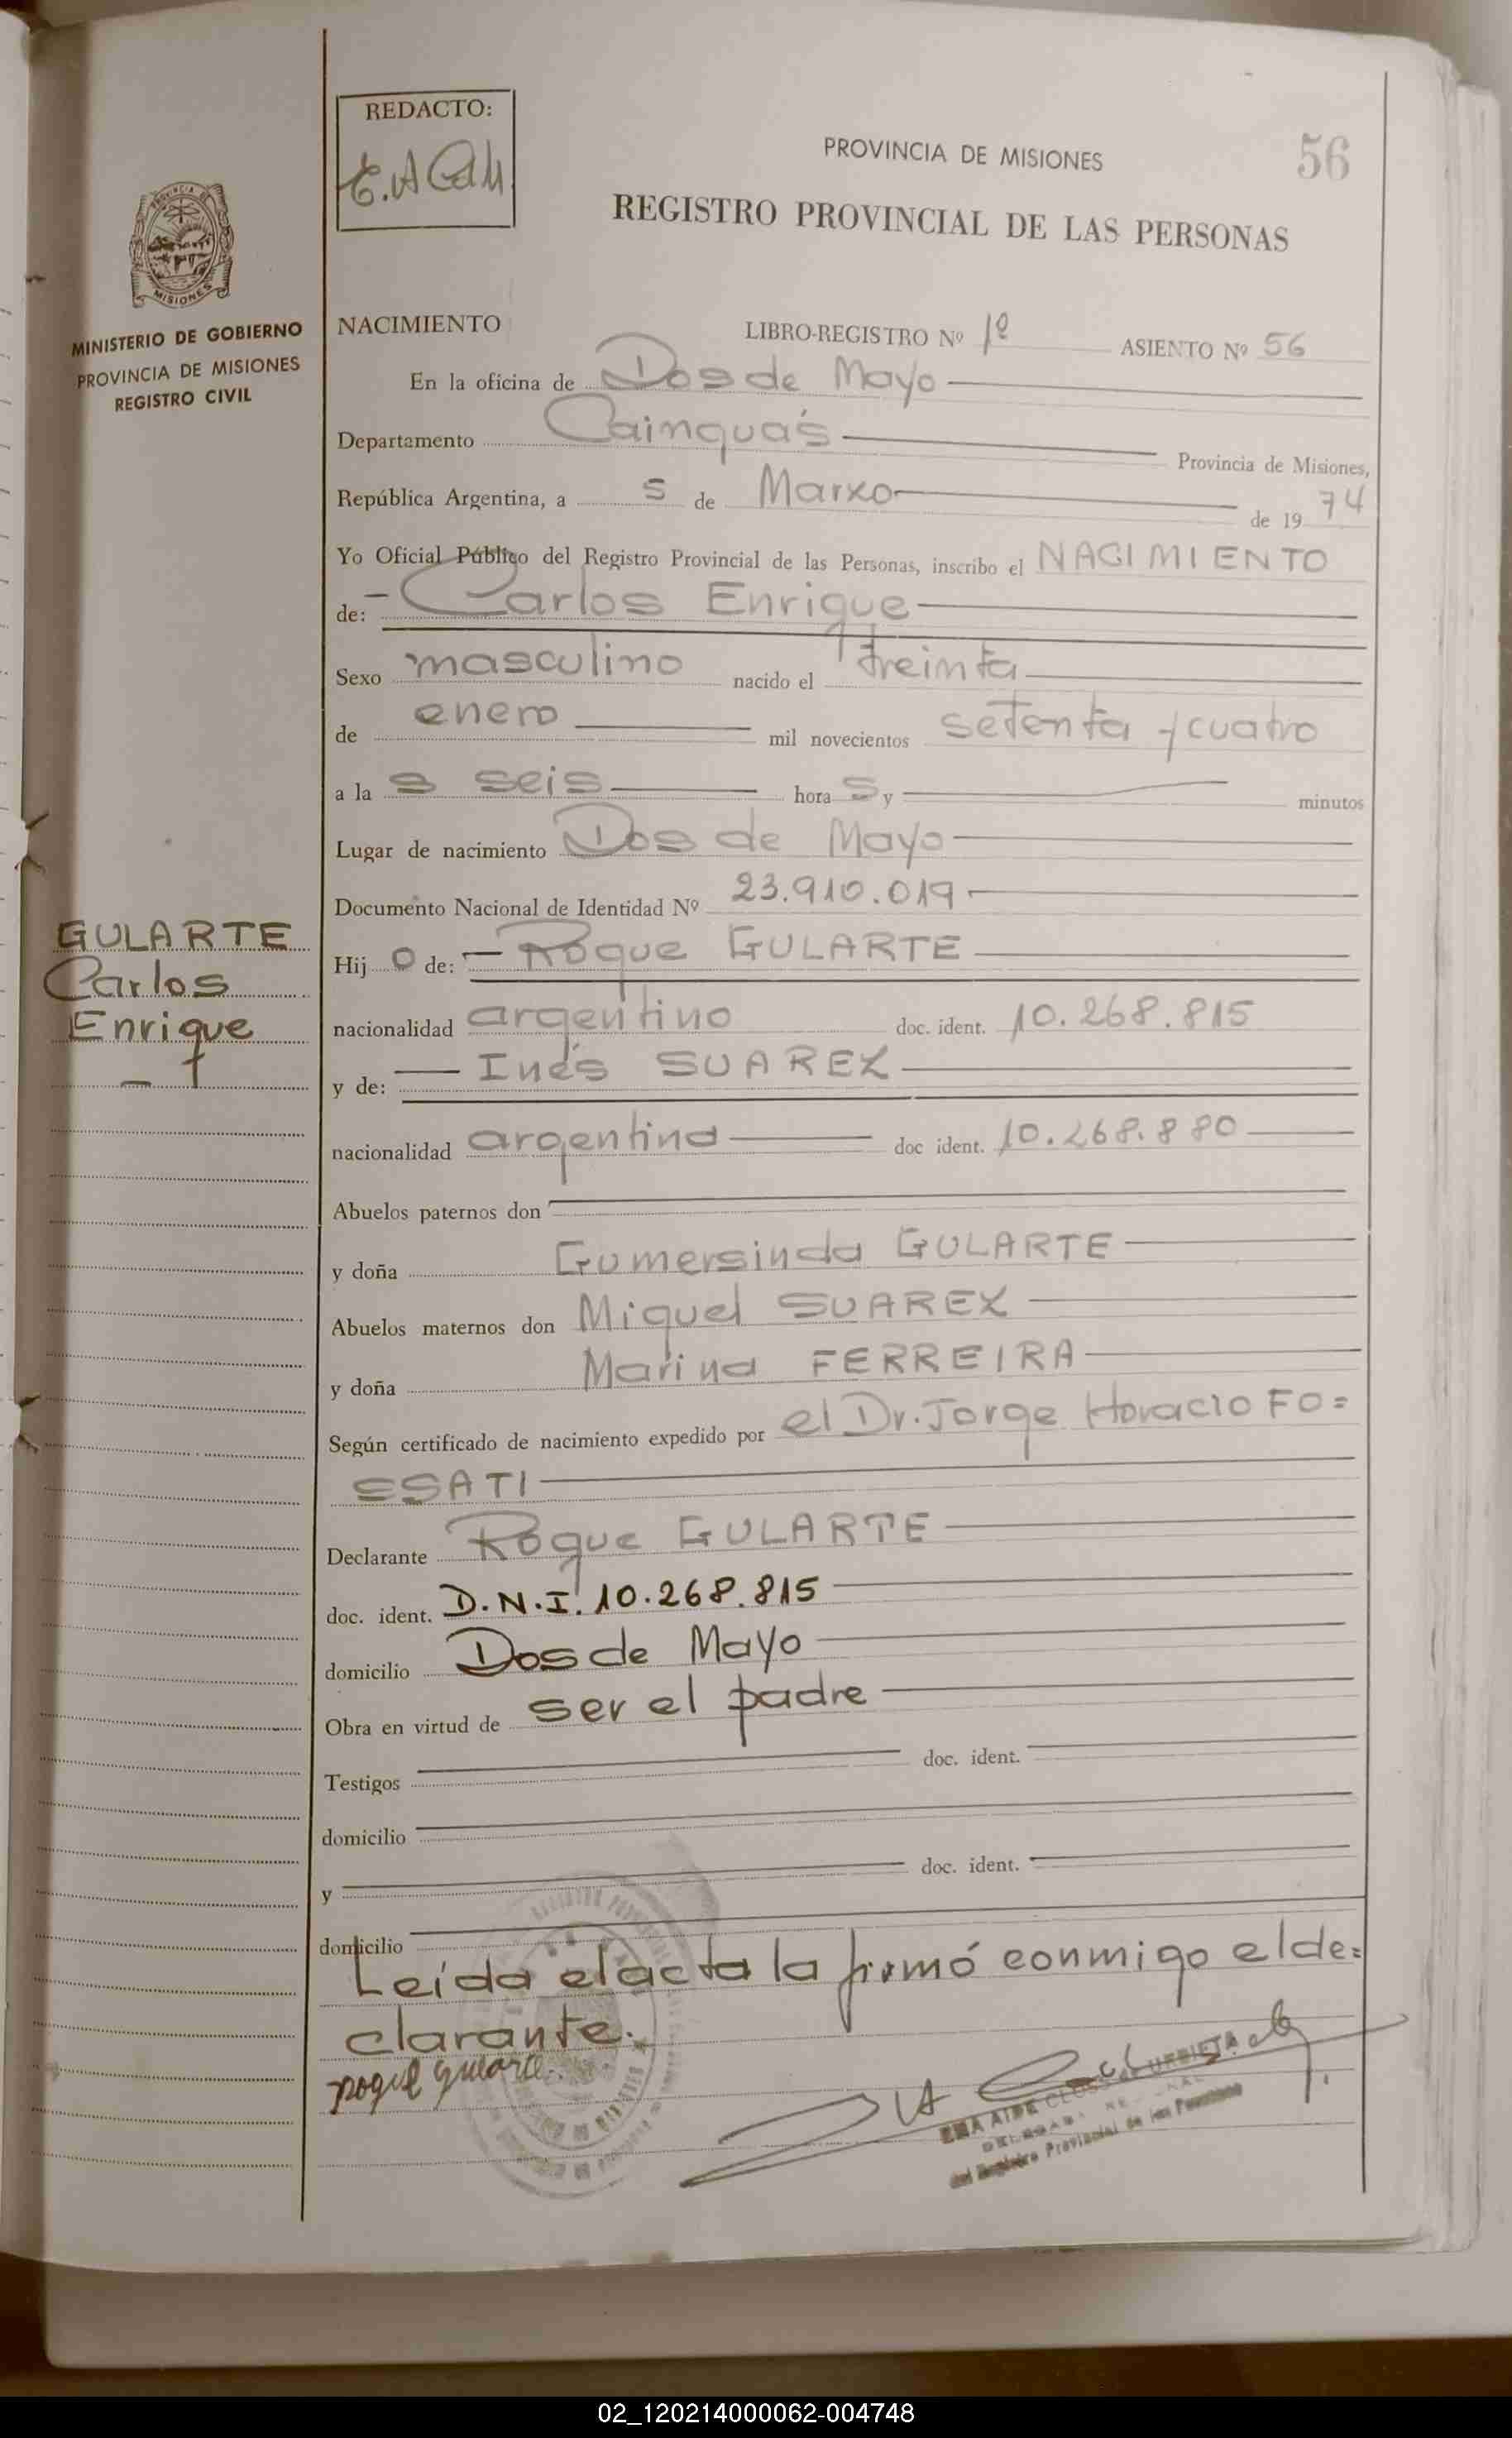 REDACTO:
PROVINCIA DE MISIONES
56
REGISTRO PROVINCIAL DE LAS PERSONAS
PROVINCIA DE
MISIONES
MINISTERIO DE GOBIERNO
PROVINCIA DE MISIONES
REGISTRO CIVIL
NACIMIENTO LIBRO-REGISTRO Nº 1º ASIENTO Nº 56
En la oficina de Dos de Mayo
Departamento Cainguás Provincia de Misiones,
República Argentina, a 5 de Marzo de 1974
Yo Oficial Público del Registro Provincial de las Personas, inscribo el NACIMIENTO
de: Carlos Enrique
Sexo masculino nacido el treinta
de enero mil novecientos setenta y cuatro
a la s seis hora s y minutos
Lugar de nacimiento Dos de Mayo
Documento Nacional de Identidad Nº 23.910.019
GULARTE
Carlos
Enrique
Hijo de: Roque GULARTE
nacionalidad argentino doc. ident. 10.268.815
y de: Inés SUAREZ
nacionalidad argentina doc ident. 10.268.880
Abuelos paternos don
y doña Gumersinda GULARTE
Abuelos maternos don Miguel SUAREZ
y doña Marina FERREIRA
Según certificado de nacimiento expedido por el Dr. Jorge Horacio FO=
SSATI
Declarante Roque GULARTE
doc. ident. D.N.I. 10.268.815
domicilio Dos de Mayo
Obra en virtud de ser el padre
Testigos doc. ident.
domicilio
y doc. ident.
domicilio
Leída el acta la firmó conmigo el de=
clarante.
del Registro Provincial de las Personas
02_120214000062-004748